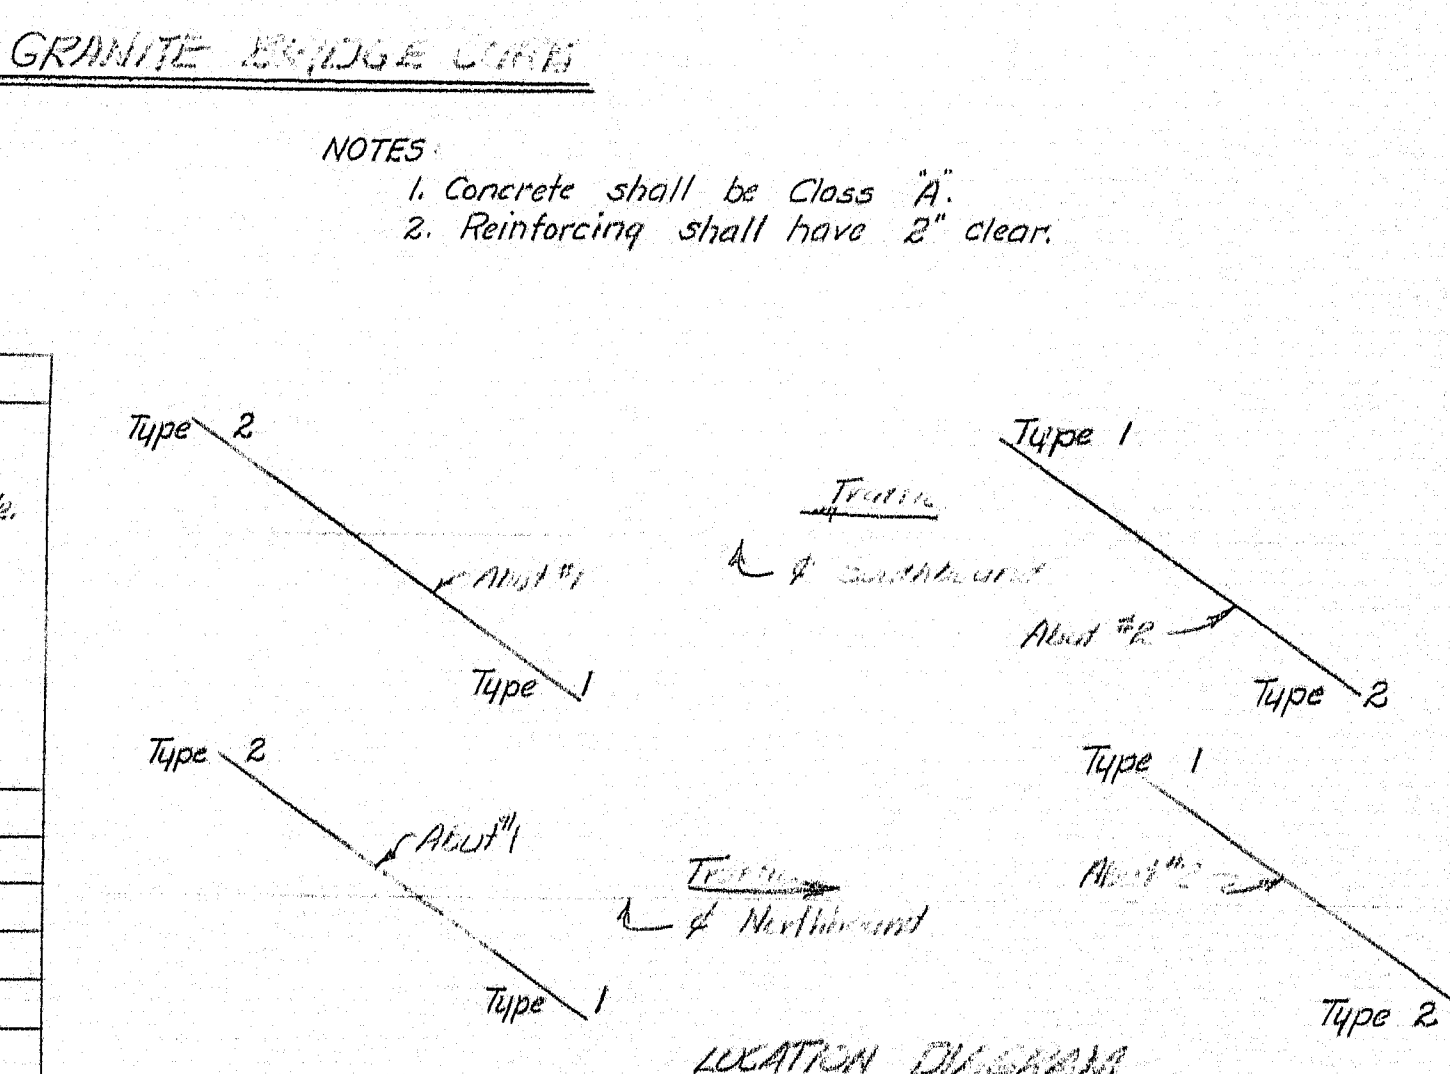 GRANITE BRIDGE CURB
NOTES
1. Concrete shall be Class "A".
2. Reinforcing shall have 2" clear.
Type 2
Type 1
Traffic
Abut #1
℄ Southbound
Abut #2
Type 1
Type 2
Type 2
Type 1
Abut #1
Traffic
Abut #2
℄ Northbound
Type 1
Type 2
LOCATION DIAGRAM